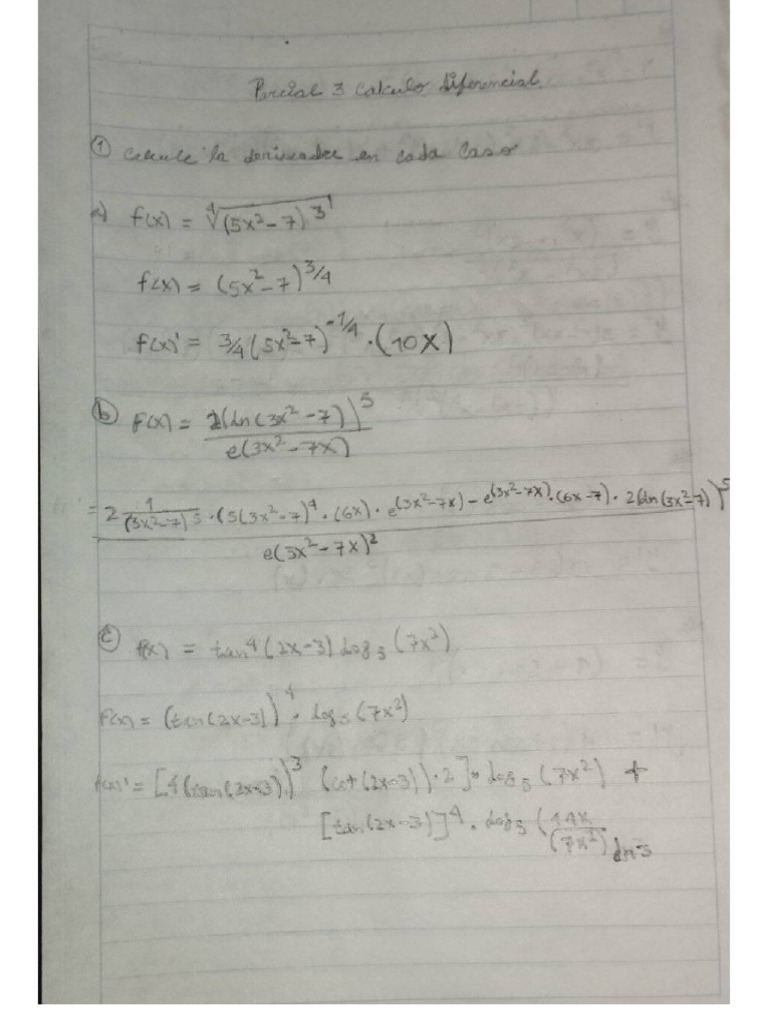 Parcial 3 Calculo diferencial.
① Calcule la derivada en cada caso
a) f(x) = ∜(5x²-7)³
f(x) = (5x²-7)^3/4
f(x)' = 3/4(5x²-7)^-1/4 · (10x)
ⓑ F(x) = 2(ln(3x²-7))⁵ / e(3x²-7x)
= 2 1/(3x²-7)5 · (5(3x²-7)⁴ · (6x) · e^(3x²-7x) - e^(3x²-7x) · (6x-7) · 2(ln(3x²-7))⁵ / e(3x²-7x)²
ⓒ f(x) = tan⁴(2x-3) log₃(7x²)
F(x) = (tan(2x-3))⁴ · log₃(7x²)
f(x)' = [4(tan(2x-3))³ (cot(2x-3))·2] · log₃(7x²) +
[tan(2x-3)]⁴ · log₃(14x/(7x²) · ln3